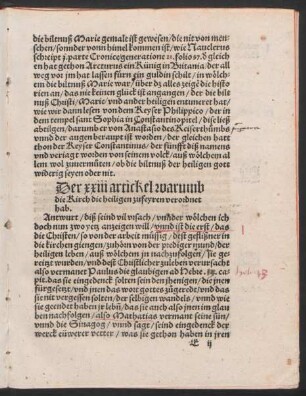 die biltnuß Marie gemalt ist gewesen/die nit von men-
schen/sonnder vonn himel kommen ist/wie Nauclerus
schreipt j.parte Cronice generatione
hat gethon Arcturus ein Künig in Britania/der all
weg vor jm hat lassen fürn ein guldin schilt/in wölch-
em die biltnuß Marie war/der alles zeigt die histo-
rien an/das nie kein glück ist angangen/der die bilt-
nuß Christi/Marie/vnd ander heiligen entuneret hat/
wie wir dann lesen von dem Keyser Philippico/der in
dem tempel sant Sophia in Constantinopel/die ließ
abtilgen/darumb er von Anastasio des Keiserthumbs
vnd der augen beraupt ist worden/der gleichen hatt
thon der Keyser Constantinus/der fünfft diß namens
vnd vertagen worden von seinem volck/auß wölchem al-
lem wol zuuermüten/ob die biltnuß der heiligen gott
widerig seyen oder nit.
Der xxiii artickel warumb
die Kirch die heiligen zufeyren verordnet
hab.
Antwurt/diß seind vil vrsach/vnder wölchen ich
doch nun zwo yetz anzeigen will/vnnd ist die erst/das
die Christen/so von der arbeit müssig/dest geflißner in
die kirchen giengen/zuhören von der prediger mund/der
heiligen leben/auß wölchem jn nachzufolgen/sie ge-
reitzt wurden/vnd deß Christlicher zuleben verursacht
also vermanet Paulus die glaubigen ad Hebre.
pit.das sie eingedenck solten sein jhenigen/die jnen
fürgesetzt/vnd jnen das wort gottes zügeredt/vnd das
sie nit vergessen solten/der selbigen wandels/vnnd wie
sie geendet haben jr lebñ/das sie auch also jnen im glau
ben nachfolgen/also Mathatias vermant seine sün/
vnnd die Sinagog/vnnd sagt/seind eingedenck der
werck eüwerer vetter/was sie gethon haben in jren